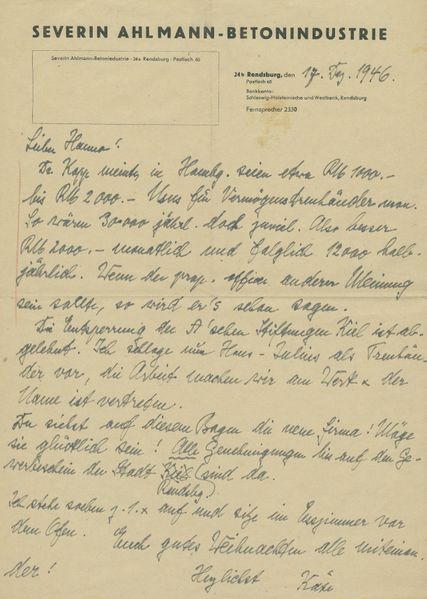 SEVERIN AHLMANN-BETONINDUSTRIE
Severin Ahlmann-Betonindustrie · 24b Rendsburg · Postfach 60
24b Rendsburg, den 17. Dez. 1946.
Postfach 60
Bankkonto:
Schleswig-Holsteinische und Westbank, Rendsburg
Fernsprecher 2330
Lieber Hanno!
Dr. Kapp meinte, in Hambg. seien etwa RM 1000.-
bis RM 2000.- Usus für Vermögenstreuhänder mon.
So wären 30000 jährl. doch zuviel. Also besser
RM 2000.- monatlich und folglich 12000 halb-
jährlich. Wenn der prop. officer anderer Meinung
sein sollte, so wird er's schon sagen.
Die Entsperrung der A'schen Stiftungen Kiel ist ab-
gelehnt. Ich schlage nun Hans-Julius als Treuhän-
der vor, die Arbeit machen wir am Werk & der
Name ist vertreten.
Du siehst auf diesem Bogen die neue Firma! Möge
sie glücklich sein! Alle Genehmigungen bis auf den Ge-
werbeschein der Stadt Kiel sind da.
(Rendsbg.)
Ich stehe soeben z. 1. x auf und sitze im Esszimmer vor
dem Ofen. Euch gutes Weihnachten alle miteinan-
der! Herzlichst Käte